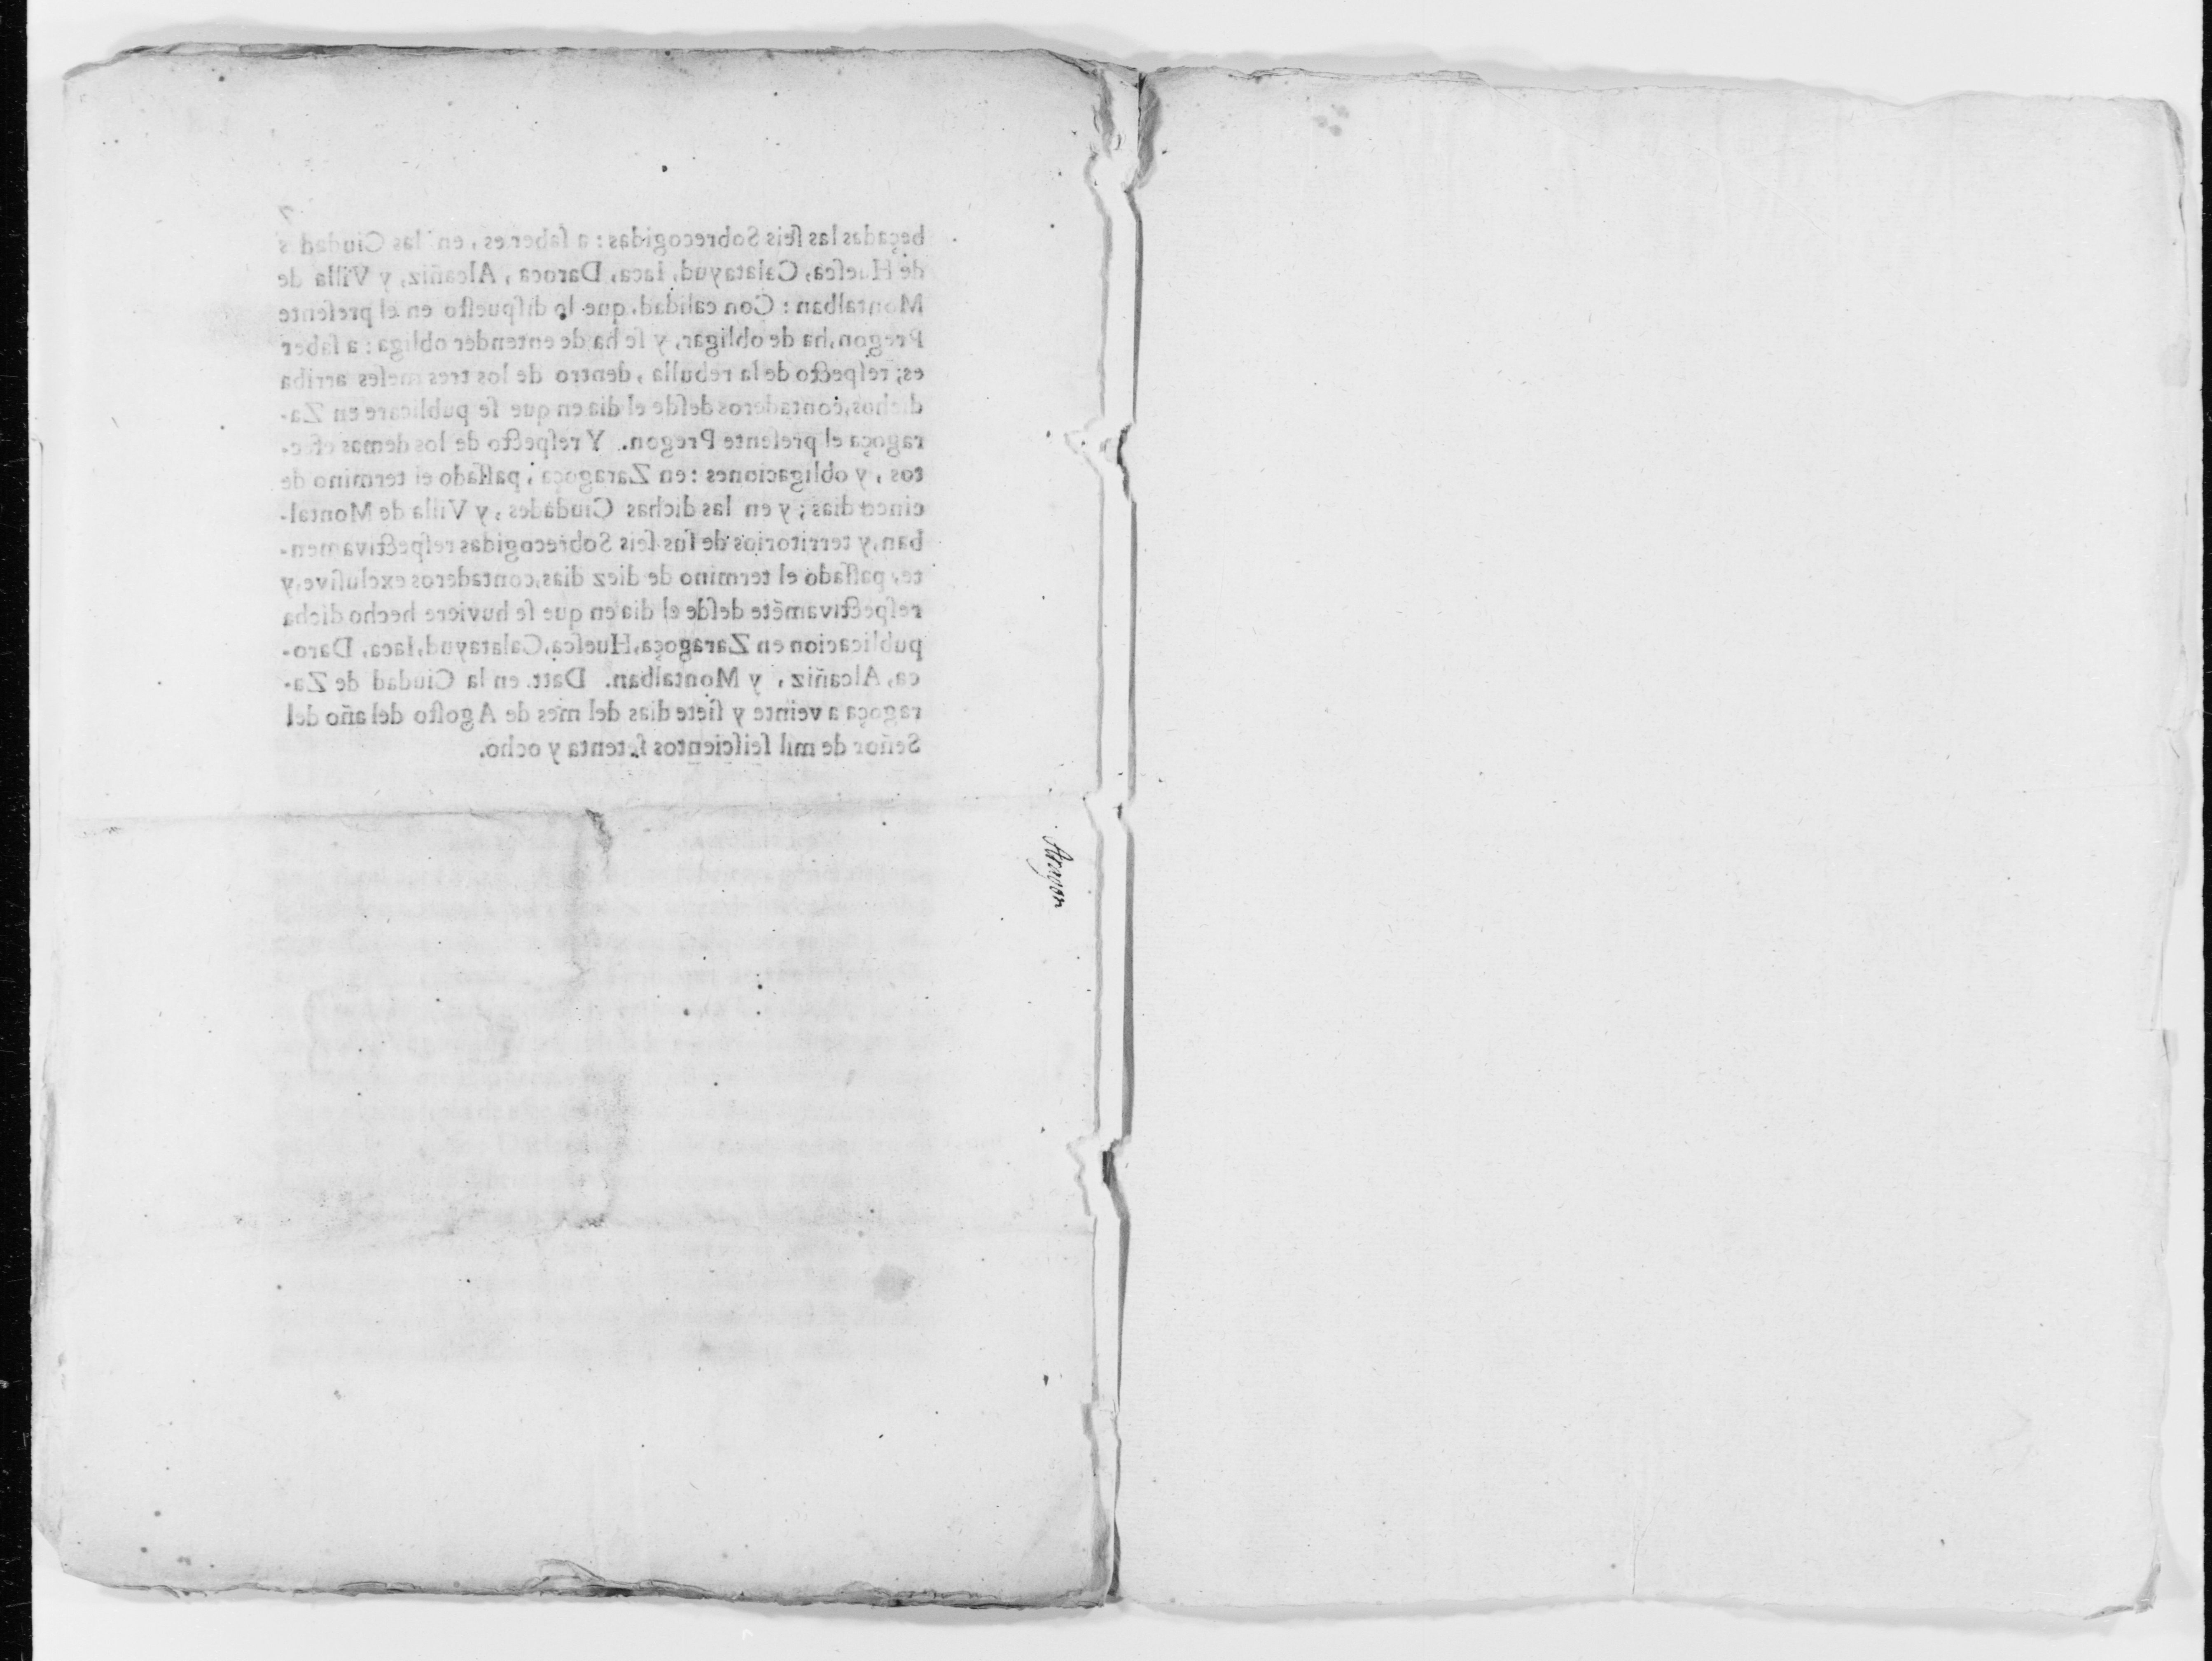 7
beçadas las ſeis Sobrecogidas: a ſaber es, en las Ciudad s
de Hueſca, Calatayud, Iaca, Daroca, Alcañiz, y Villa de
Montalban: Con calidad, que lo diſpueſto en el preſente
Pregon, ha de obligar, y ſe ha de entender obliga: a ſaber
es; reſpecto de la rebulla, dentro de los tres meſes arriba
dichos, contaderos deſde el dia en que ſe publicare en Za-
ragoça el preſente Pregon. Y reſpecto de los demas efec-
tos, y obligaciones: en Zaragoça, paſſado el termino de
cinco dias; y en las dichas Ciudades, y Villa de Montal-
ban, y territorios de ſus ſeis Sobrecogidas reſpectivamen-
te, paſſado el termino de diez dias, contaderos excluſive, y
reſpectivamẽte deſde el dia en que ſe huviere hecho dicha
publicacion en Zaragoça, Hueſca, Calatayud, Iaca, Daro-
ca, Alcañiz, y Montalban. Datt. en la Ciudad de Za-
ragoça a veinte y ſiete dias del mes de Agoſto del año del
Señor de mil ſeiſcientos ſetenta y ocho.
Aragon